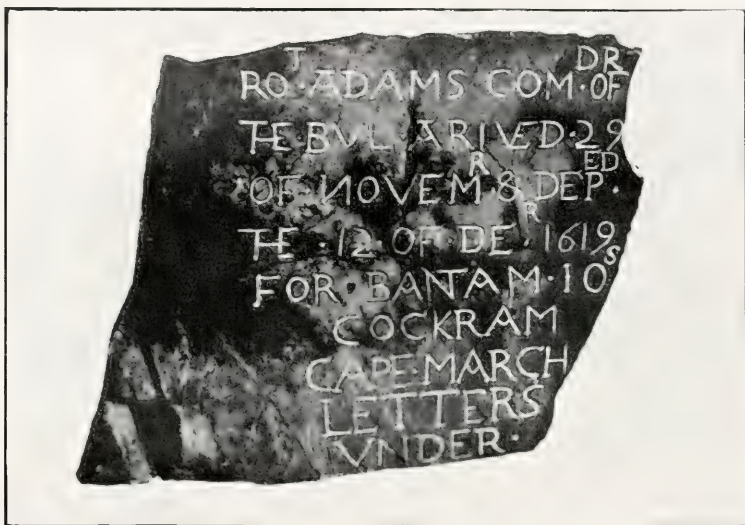 ROᵀ·ADAMS COM·ᴰᴿ OF
THE BVL ARIVED·29
OF NOVEMᴿ & DEPᴱᴰ·
THE·12 OF·DEᴿ·1619
FOR·BANTAM·IOˢ
COCKRAM
CAPE·MARCH
LETTERS
VNDER·